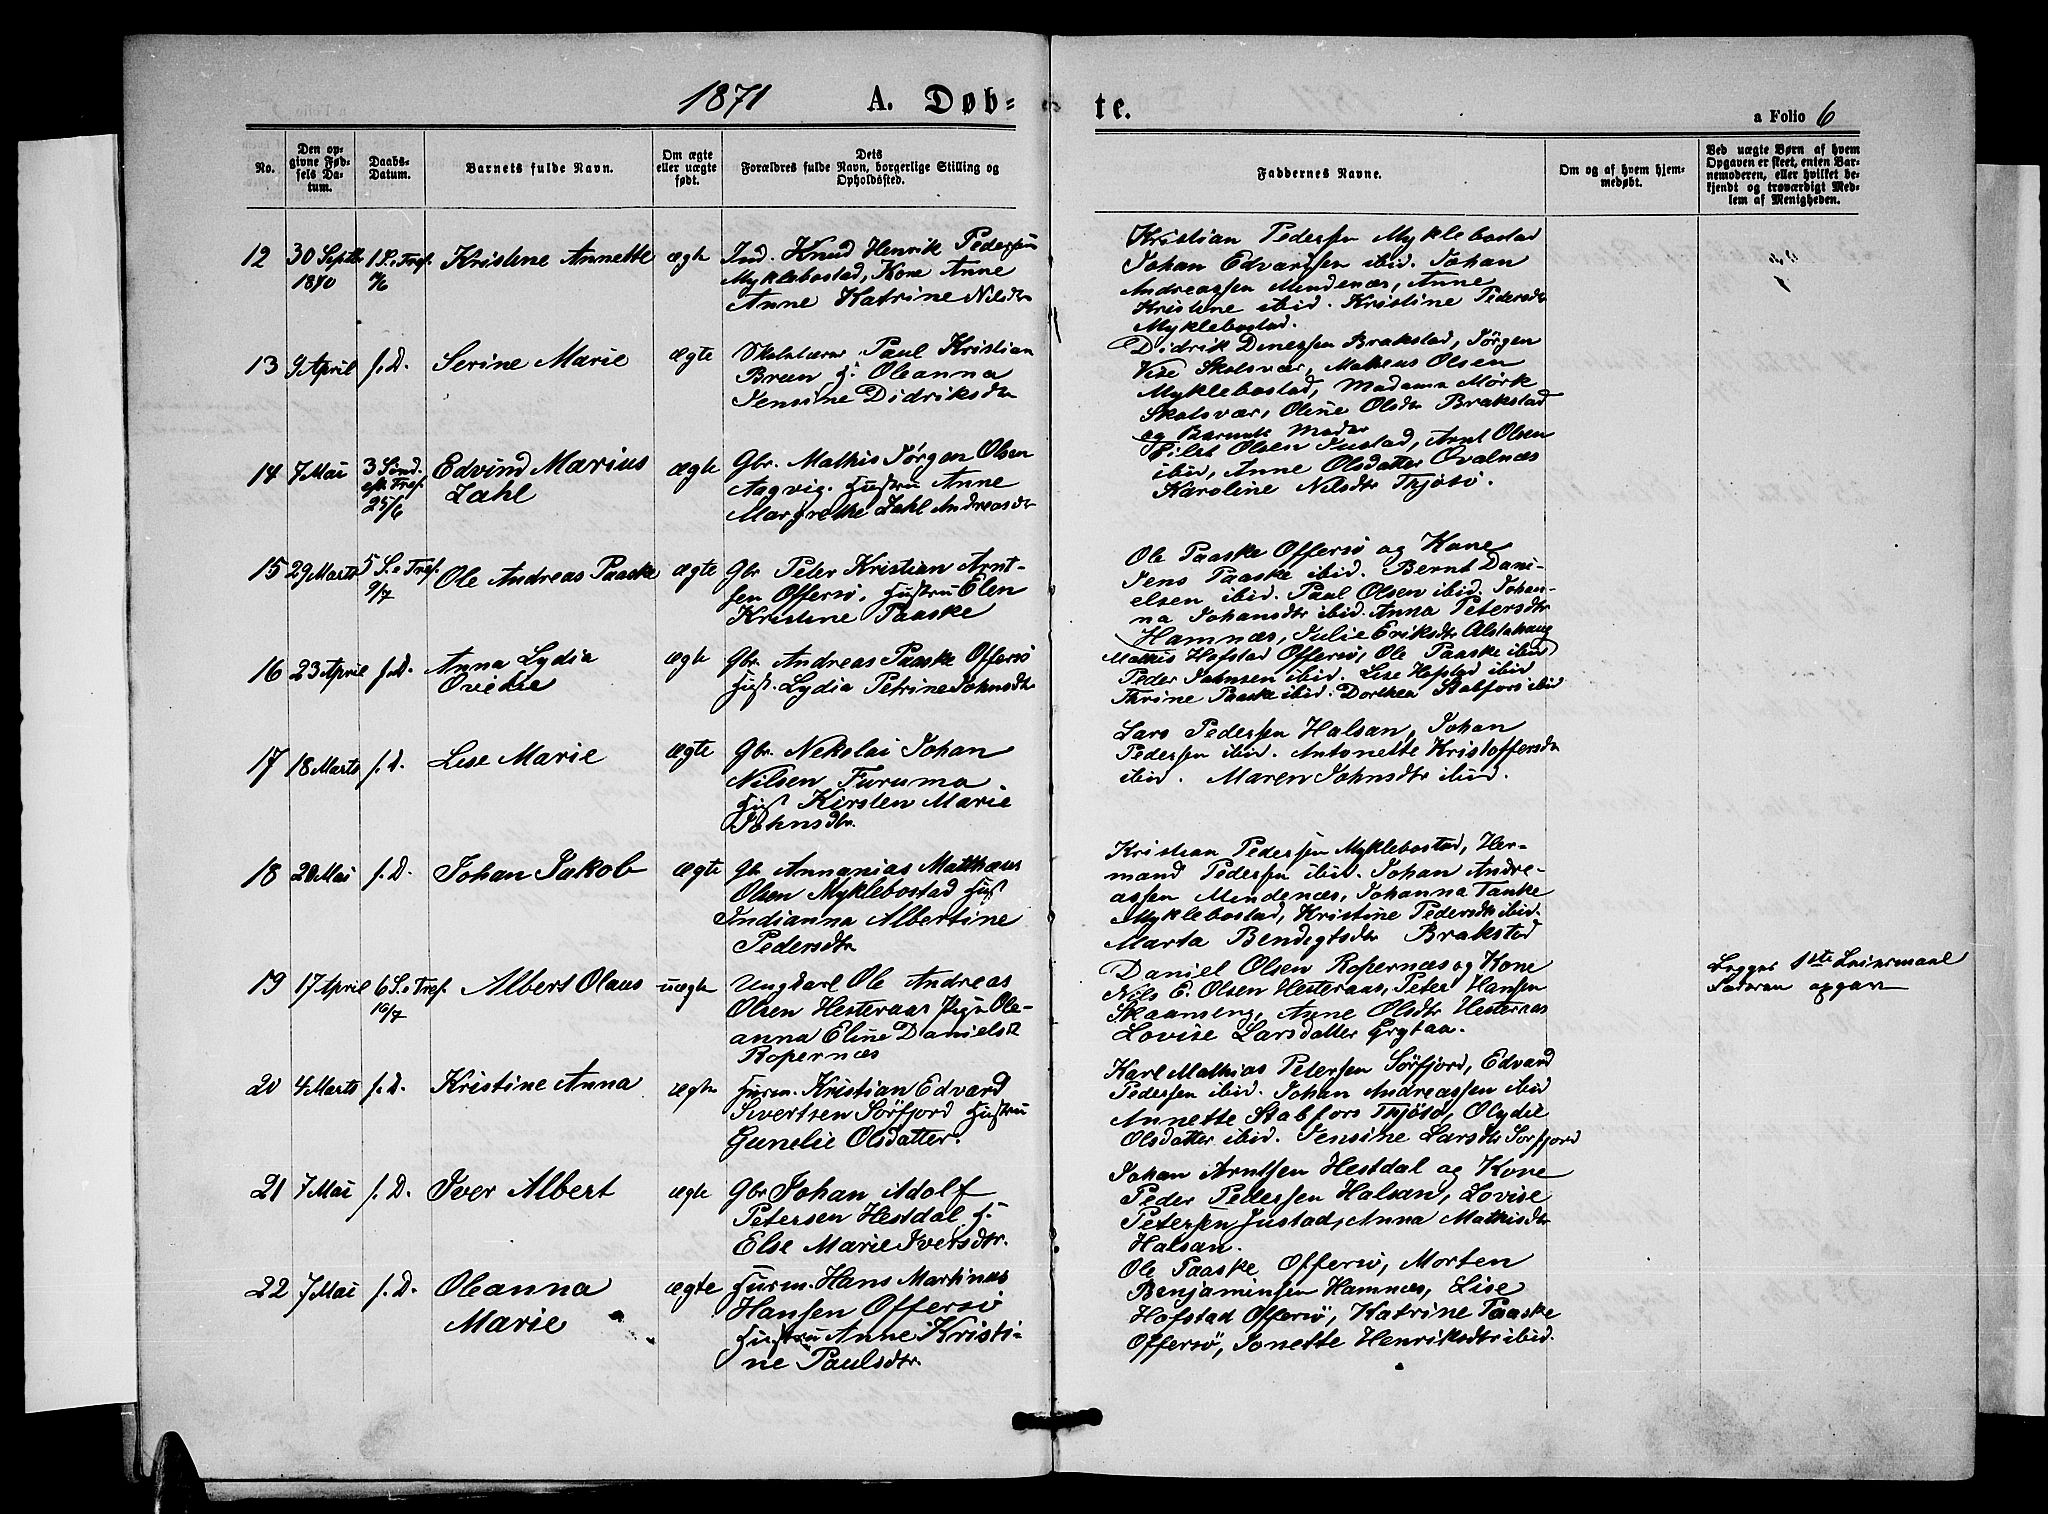 1871 A. Døb-
te.
a Folio 6
No.
Den op-
givne Fød-
sels Da-
tum.
Daabs-
Datum.
Barnets fulde Navn.
Om ægte
eller uægte
født.
Dets
Forældres fulde Navn, borgerlige Stilling og
Opholdssted.
Faddernes Navne.
Om og af hvem hjem-
medøbt.
Ved uægte Børn af hvem
Opgaven er skeet, enten Bar-
nemoderen, eller hvilket be-
kjendt og troværdigt Med-
lem af Menigheden.
12 30 Septbr 1870
Kristene Annette
ægte
Ind. Knud Henrik Pedersen
Myklebostad, Kone Anne
Anne Katrine Nilsdtr
Kristian Pedersen Myklebostad
Johan Edvardsen ibid. Johan
Andreassen Mindenæs, Anne
Kristine ibid. Kristine Pedersdtr
Myklebostad.
13 9 April s. D.
Serine Marie
ægte
Skolelærer Paul Kristian
Breen H. Oleanna
Jensine Didriksdtr
Didrik Dinessen Brakstad, Jørgen
Vise Skolsvær, Matheus Olsen
Myklebostad, Madama Mørk
Skolsvær, Oline Olsdtr Brakstad
og Barnets Moder
14 7 Mai
3 Sønd.
eft. Tref.
25/6
Edvind Marius
Zahl
ægte
Gbr. Mathis Jørgen Olsen
Aagvig. Hustru Anne
Margrethe Zahl Andreasdtr
Olsen Justad, Arnt Olsen
ibid, Anne Olsdatter Qvalnæs
Karoline Nilsdtr Thjøtø.
15 29 Marts
5 S. e Tref.
9/7
Ole Andreas Paaske
ægte
Gbr Peter Kristian Arnt-
sen Offersø. Hustru Elen
Kristine Paaske
Ole Paaske Offersø og Kone
Jens Paaske ibid. Bernt Dani-
elsen ibid. Paul Olsen ibid. Johan-
na Johansdtr ibid. Anna Petersdtr
Hamnæs, Julie Eriksdtr Alstahaug
16 23 April s. D.
Anna Lydia
Ovedie
ægte
Gbr. Andreas Paaske Offersø
Hust. Lydia Petrine Johnsdtr
Mathis Hofstad Offersø, Ole Paaske ibid
Peder Johnsen ibid. Lise Hofstad ibid
Thrine Paaske ibid. Dorthea Stabfors ibid
17 18 Marts s. D.
Lise Marie
ægte
Gbr. Nekolai Johan
Nilsen Furuma
Hust Kirsten Marie
Johnsdtr.
Lars Pedersen Halsan, Johan
Pedersen ibid. Antonette Kristoffersdtr
ibid. Maren Johnsdtr ibid.
18 28 Mai s. D.
Johan Jakob
ægte
Gb. Annanias Matthæus
Olsen Myklebostad Hust
Indianna Albertine
Pedersdtr
Kristian Pedersen Myklebostad, Her-
mand Pedersen ibid. Johan Andre-
assen Mindenæs, Johanna Tanke
Myklebostad, Kristine Pedersdtr ibid.
Marta Bendigtsdtr Brakstad
19 17 April
6 S. e Tref.
16/7
Albert Olaus
uægte
Ungkarl Ole Andreas
Olsen Hesteraas Pige Ole-
anna Eline Danielsdtr
Ropernæs
Daniel Olsen Ropernæs og Kone
Nils E. Olsen Hesteraas, Peter Hansen
Skaanseng, Anne Olsdtr Hesteraas
Lovise Larsdatter Grytaa.
Begges 1ste Leiermaal
Faderen opgav
20 4 Marts s. D.
Kristine Anna
ægte
Husm. Kristian Edvard
Sivertsen Sørfjord Hustru
Gunelie Olsdatter.
Karl Mathias Petersen Sørfjord, Edvard
Pedersen ibid. Johan Andreassen ibid
Annette Stabfors Thjøtø, Olydie
Olsdatter ibid. Jensine Larsdtr Sørfjord
21 7 Mai s. D.
Iver Albert
ægte
Gbr Johan Adolf
Petersen Hestdal H.
Else Marie Iversdtr.
Johan Arntsen Hestdal og Kone
Peder Pedersen Halsan, Lovise
Petersen Justad, Anna Mathisdtr
Halsan.
22 7 Mai s. D.
Oleanna
Marie
ægte
Husm. Hans Martinus
Hansen Offersø
Hustru Anne Kristi-
ne Paulsdtr.
Ole Paaske Offersø, Morten
Benjaminsen Hamnæs, Lise
Hofstad Offersø, Katrine Paaske
Offersø, Jonette Henriksdtr ibid.